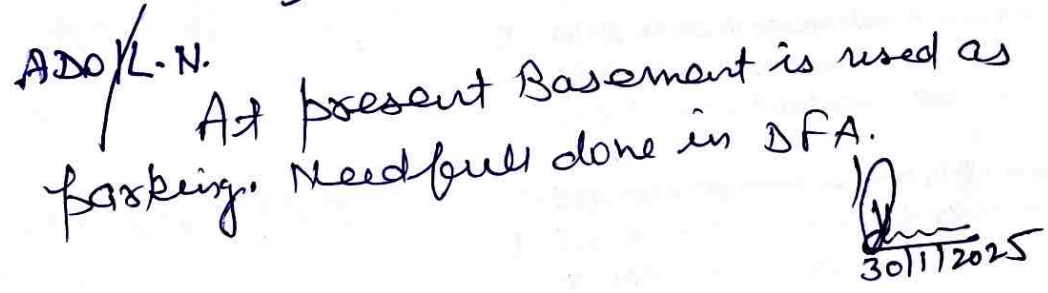 ADO/L.N.
At present Basement is used as
parking. Needfull done in DFA.
30/1/2025